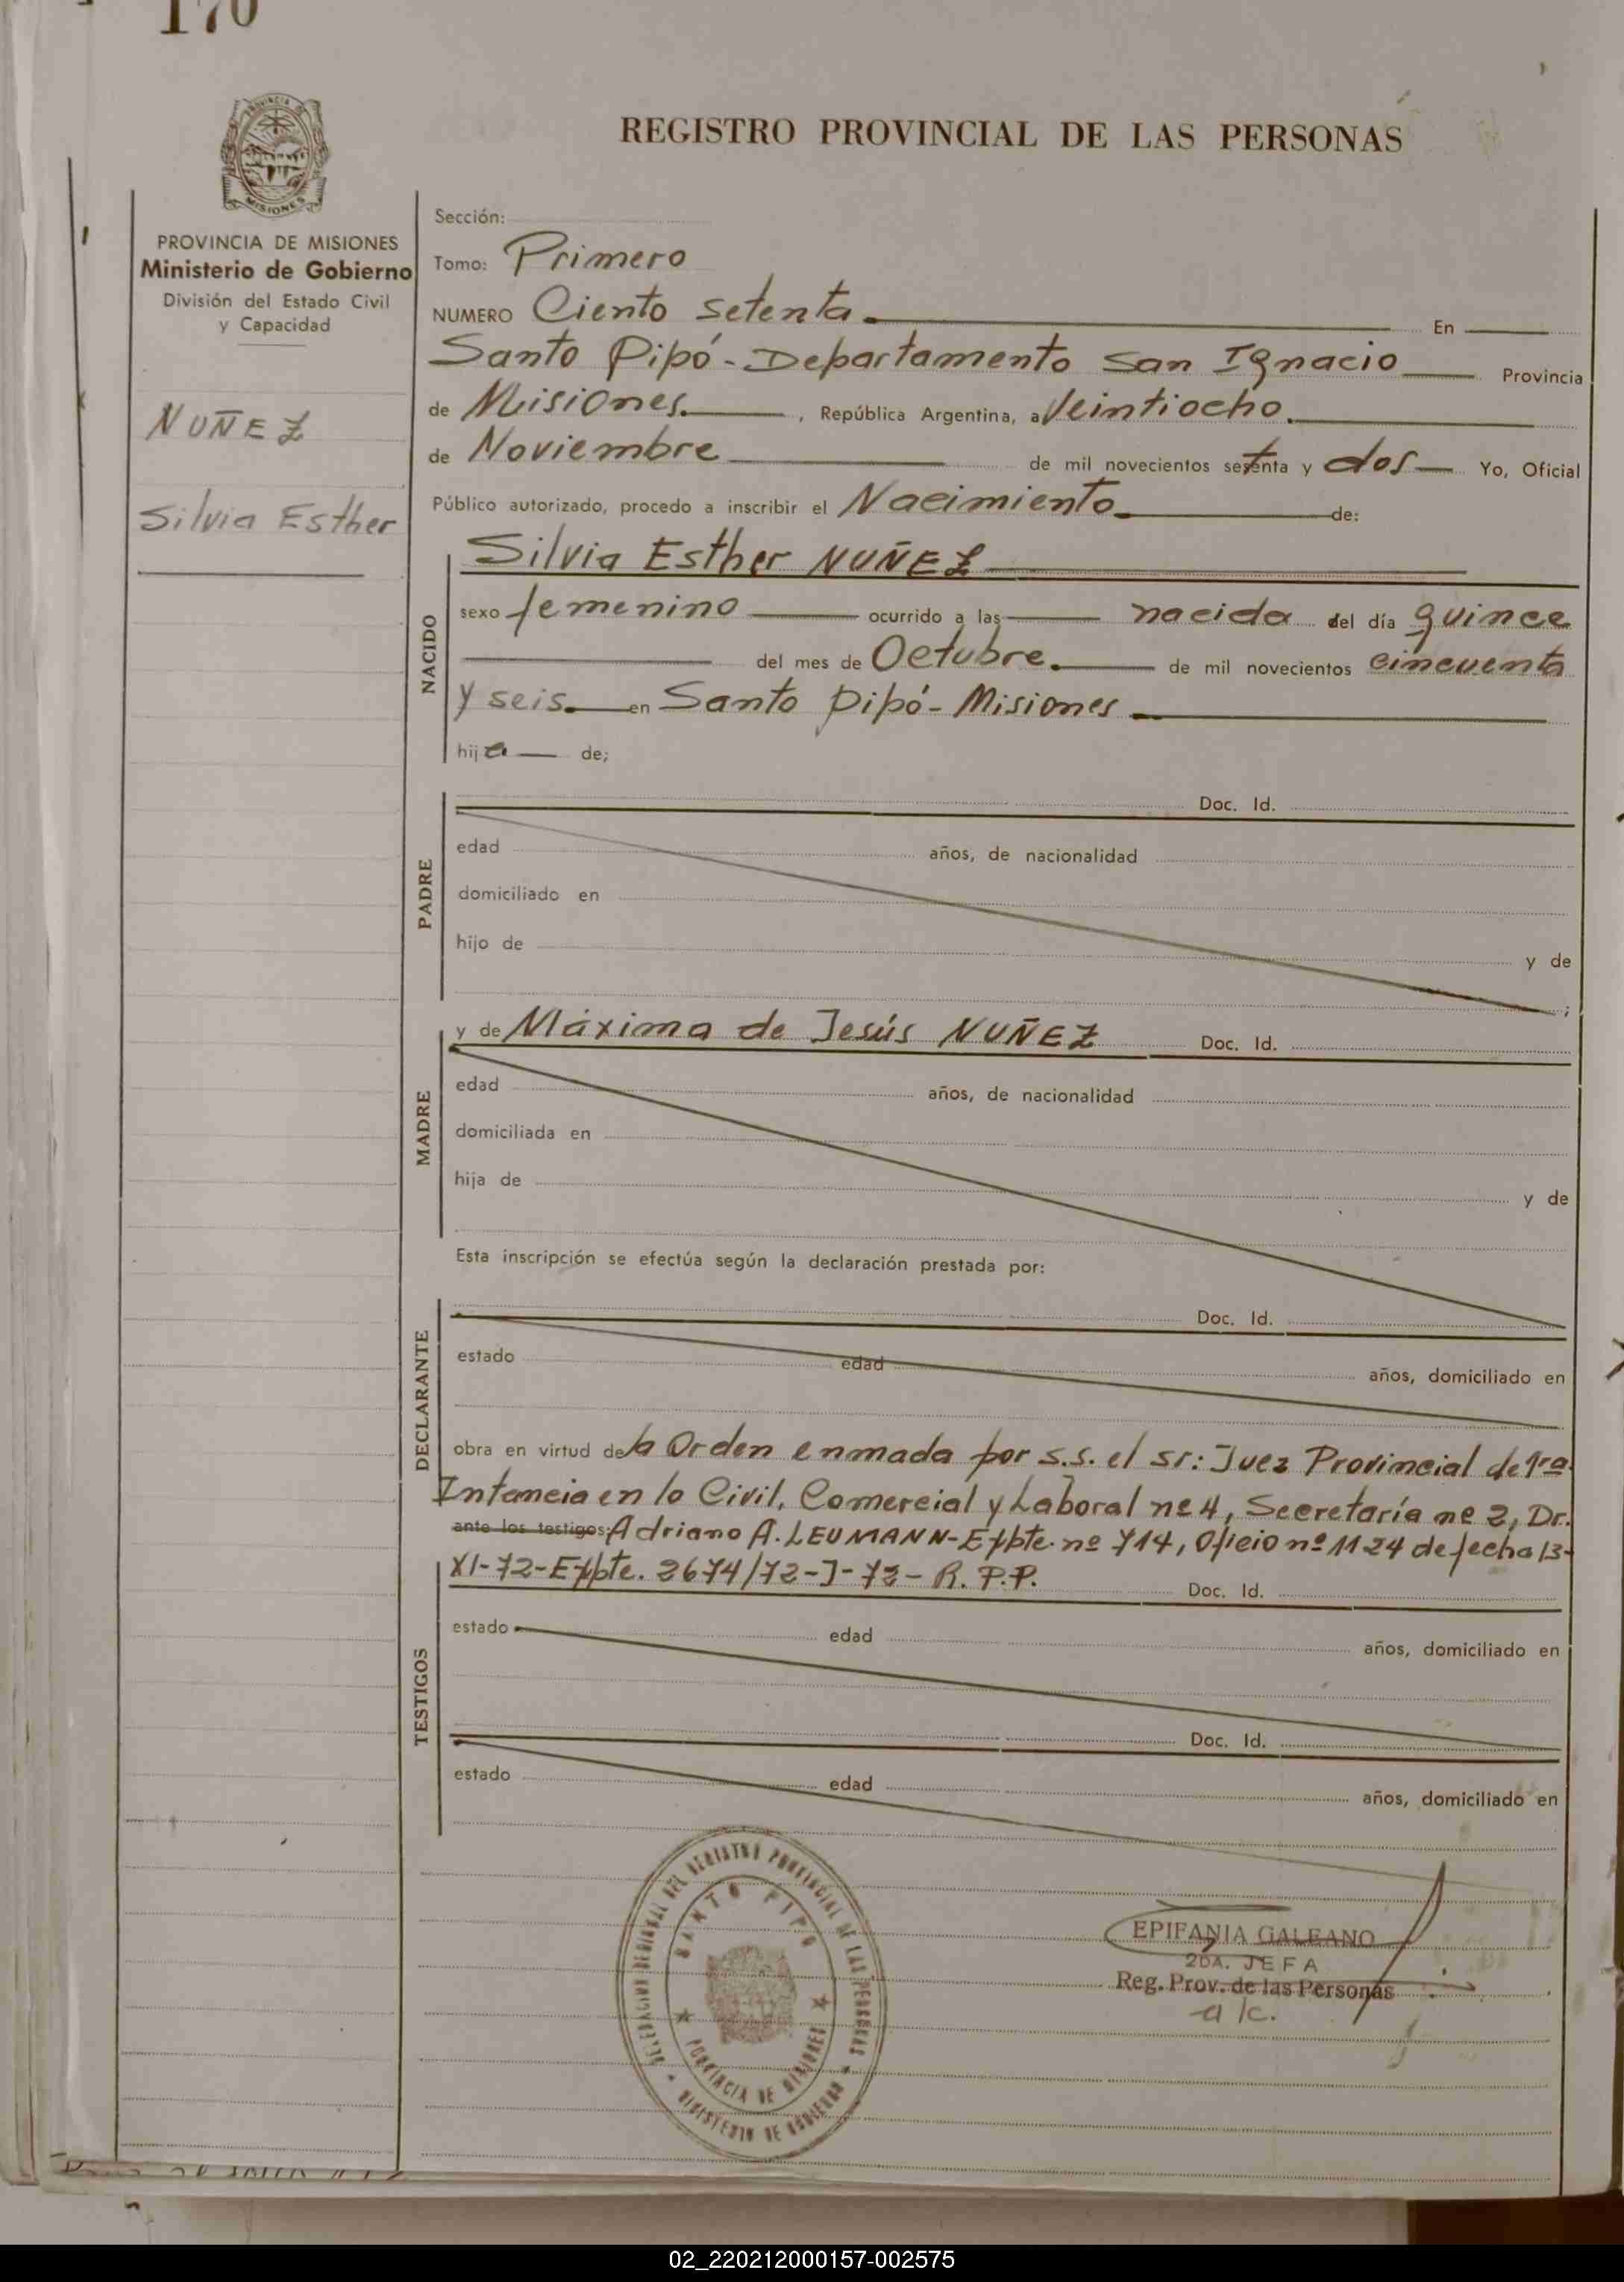 170
REGISTRO PROVINCIAL DE LAS PERSONAS
MISIONES
PROVINCIA DE MISIONES
Ministerio de Gobierno
División del Estado Civil
y Capacidad
NUÑEZ
Silvia Esther
Sección:
Tomo: Primero
NUMERO Ciento setenta. En
Santo Pipó - Departamento San Ignacio Provincia
de Misiones. , República Argentina, a Veintiocho.
de Noviembre de mil novecientos setenta y dos Yo, Oficial
Público autorizado, procedo a inscribir el Nacimiento de:
NACIDO
Silvia Esther NUÑEZ
sexo femenino ocurrido a las nacida del día quince
del mes de Octubre. de mil novecientos cincuenta
y seis. en Santo Pipó - Misiones
hija de;
PADRE
Doc. Id.
edad años, de nacionalidad
domiciliado en
hijo de y de
;
MADRE
y de Máxima de Jesús NUÑEZ Doc. Id.
edad años, de nacionalidad
domiciliada en
hija de y de
Esta inscripción se efectúa según la declaración prestada por:
DECLARANTE
Doc. Id.
estado edad años, domiciliado en
obra en virtud de la Orden enmada por s.s. el sr: Juez Provincial de 1ra.
Intancia en lo Civil, Comercial y Laboral nº 4, Secretaría nº 2, Dr.
ante los testigos; Adriano A. LEUMANN - Expte. nº 714, Oficio nº 1124 de fecha 13-
XI-72-Expte. 2674/72-J-72- R.P.P. Doc. Id.
TESTIGOS
estado edad años, domiciliado en
Doc. Id.
estado edad años, domiciliado en
DELEGACION REGIONAL DEL REGISTRO PROVINCIAL DE LAS PERSONAS
SANTO PIPO
PROVINCIA DE MISIONES
MINISTERIO DE GOBIERNO
EPIFANIA GALEANO
2DA. JEFA
Reg. Prov. de las Personas
a/c.
02_220212000157-002575